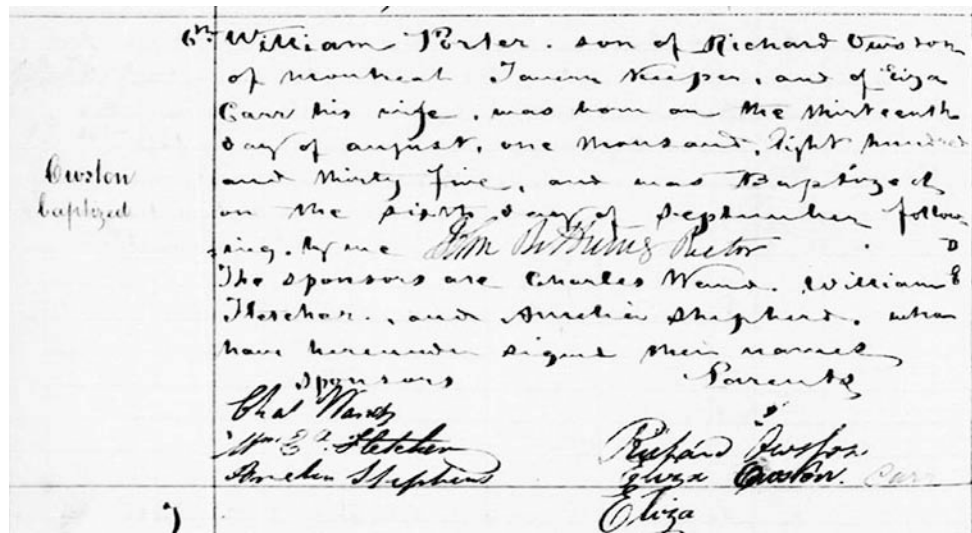 6th William Porter. son of Richard Owston
of Montreal Tavern Keeper, and of Eliza
Carr his wife, was born on the thirteenth
day of august, one thousand, Eight hundred
and thirty five, and was Baptized
on the sixth day of September follow
ing, by me John Bethune Rector
Owston
baptized
The sponsors are Charles Wand. William E
D
Fletcher., and Amelia Shepherd. who
have hereunder signed their names
Sponsors Parents
Chas Wand
Wm Ed Fletcher Richard Owston
Amelia Stephens Eliza Owston. Carr
Eliza